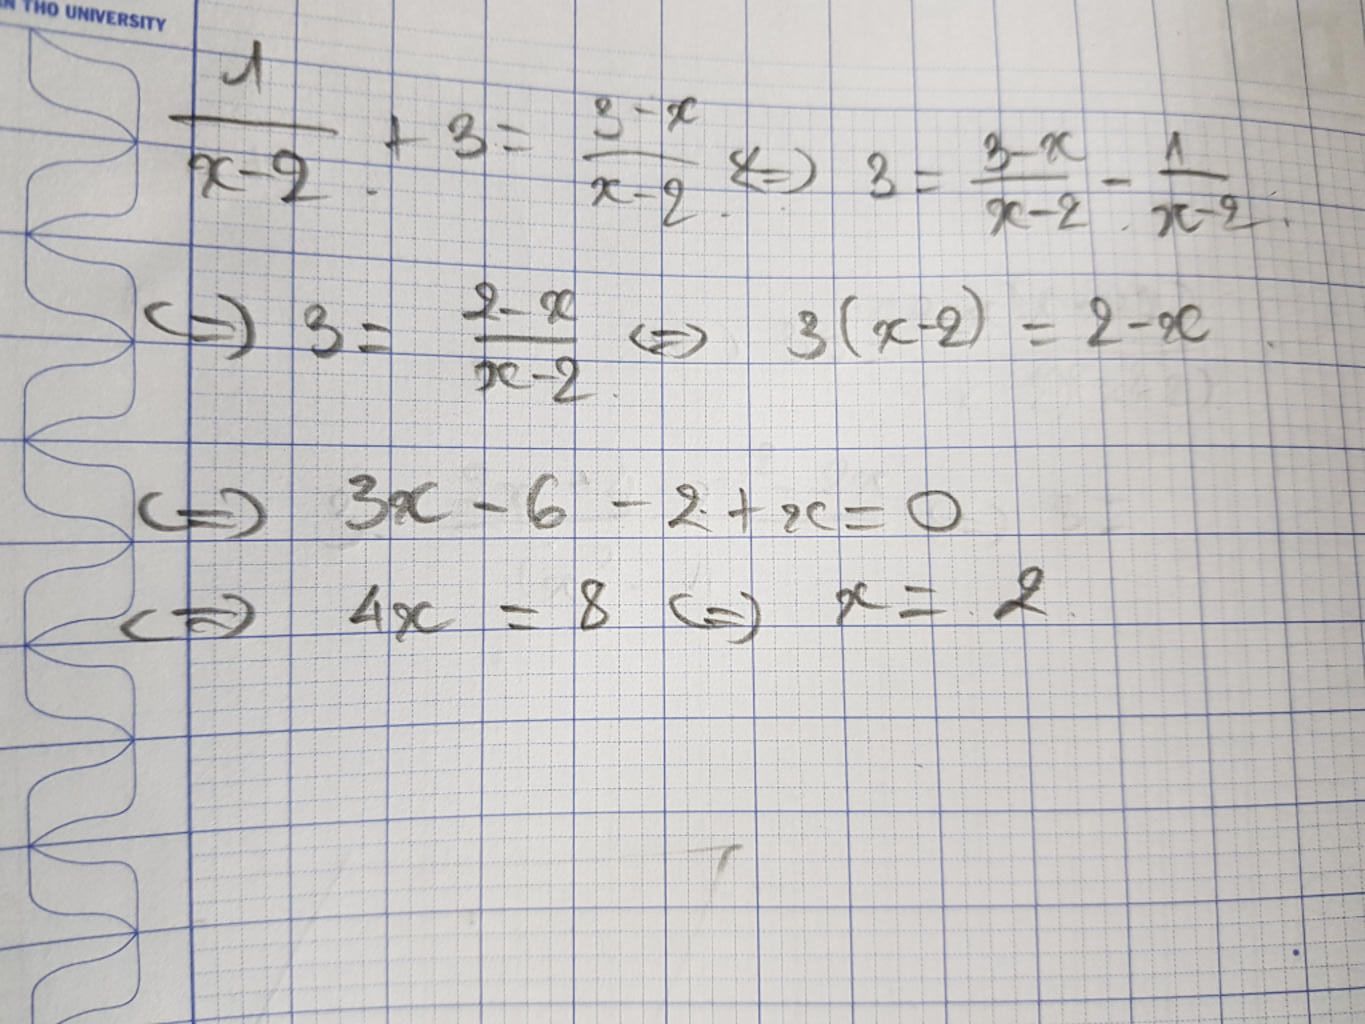 N THO UNIVERSITY
1/(x-2) + 3 = (3-x)/(x-2) <=> 3 = (3-x)/(x-2) - 1/(x-2)
<=> 3 = (2-x)/(x-2) <=> 3(x-2) = 2-x
<=> 3x - 6 - 2 + x = 0
<=> 4x = 8 <=> x = 2